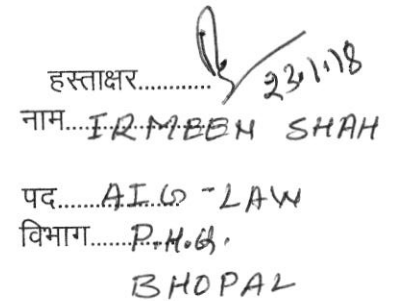 हस्ताक्षर............ 23.1.18
नाम...IRMEEN SHAH
पद.......AIG - LAW
विभाग.......P.H.Q.
BHOPAL